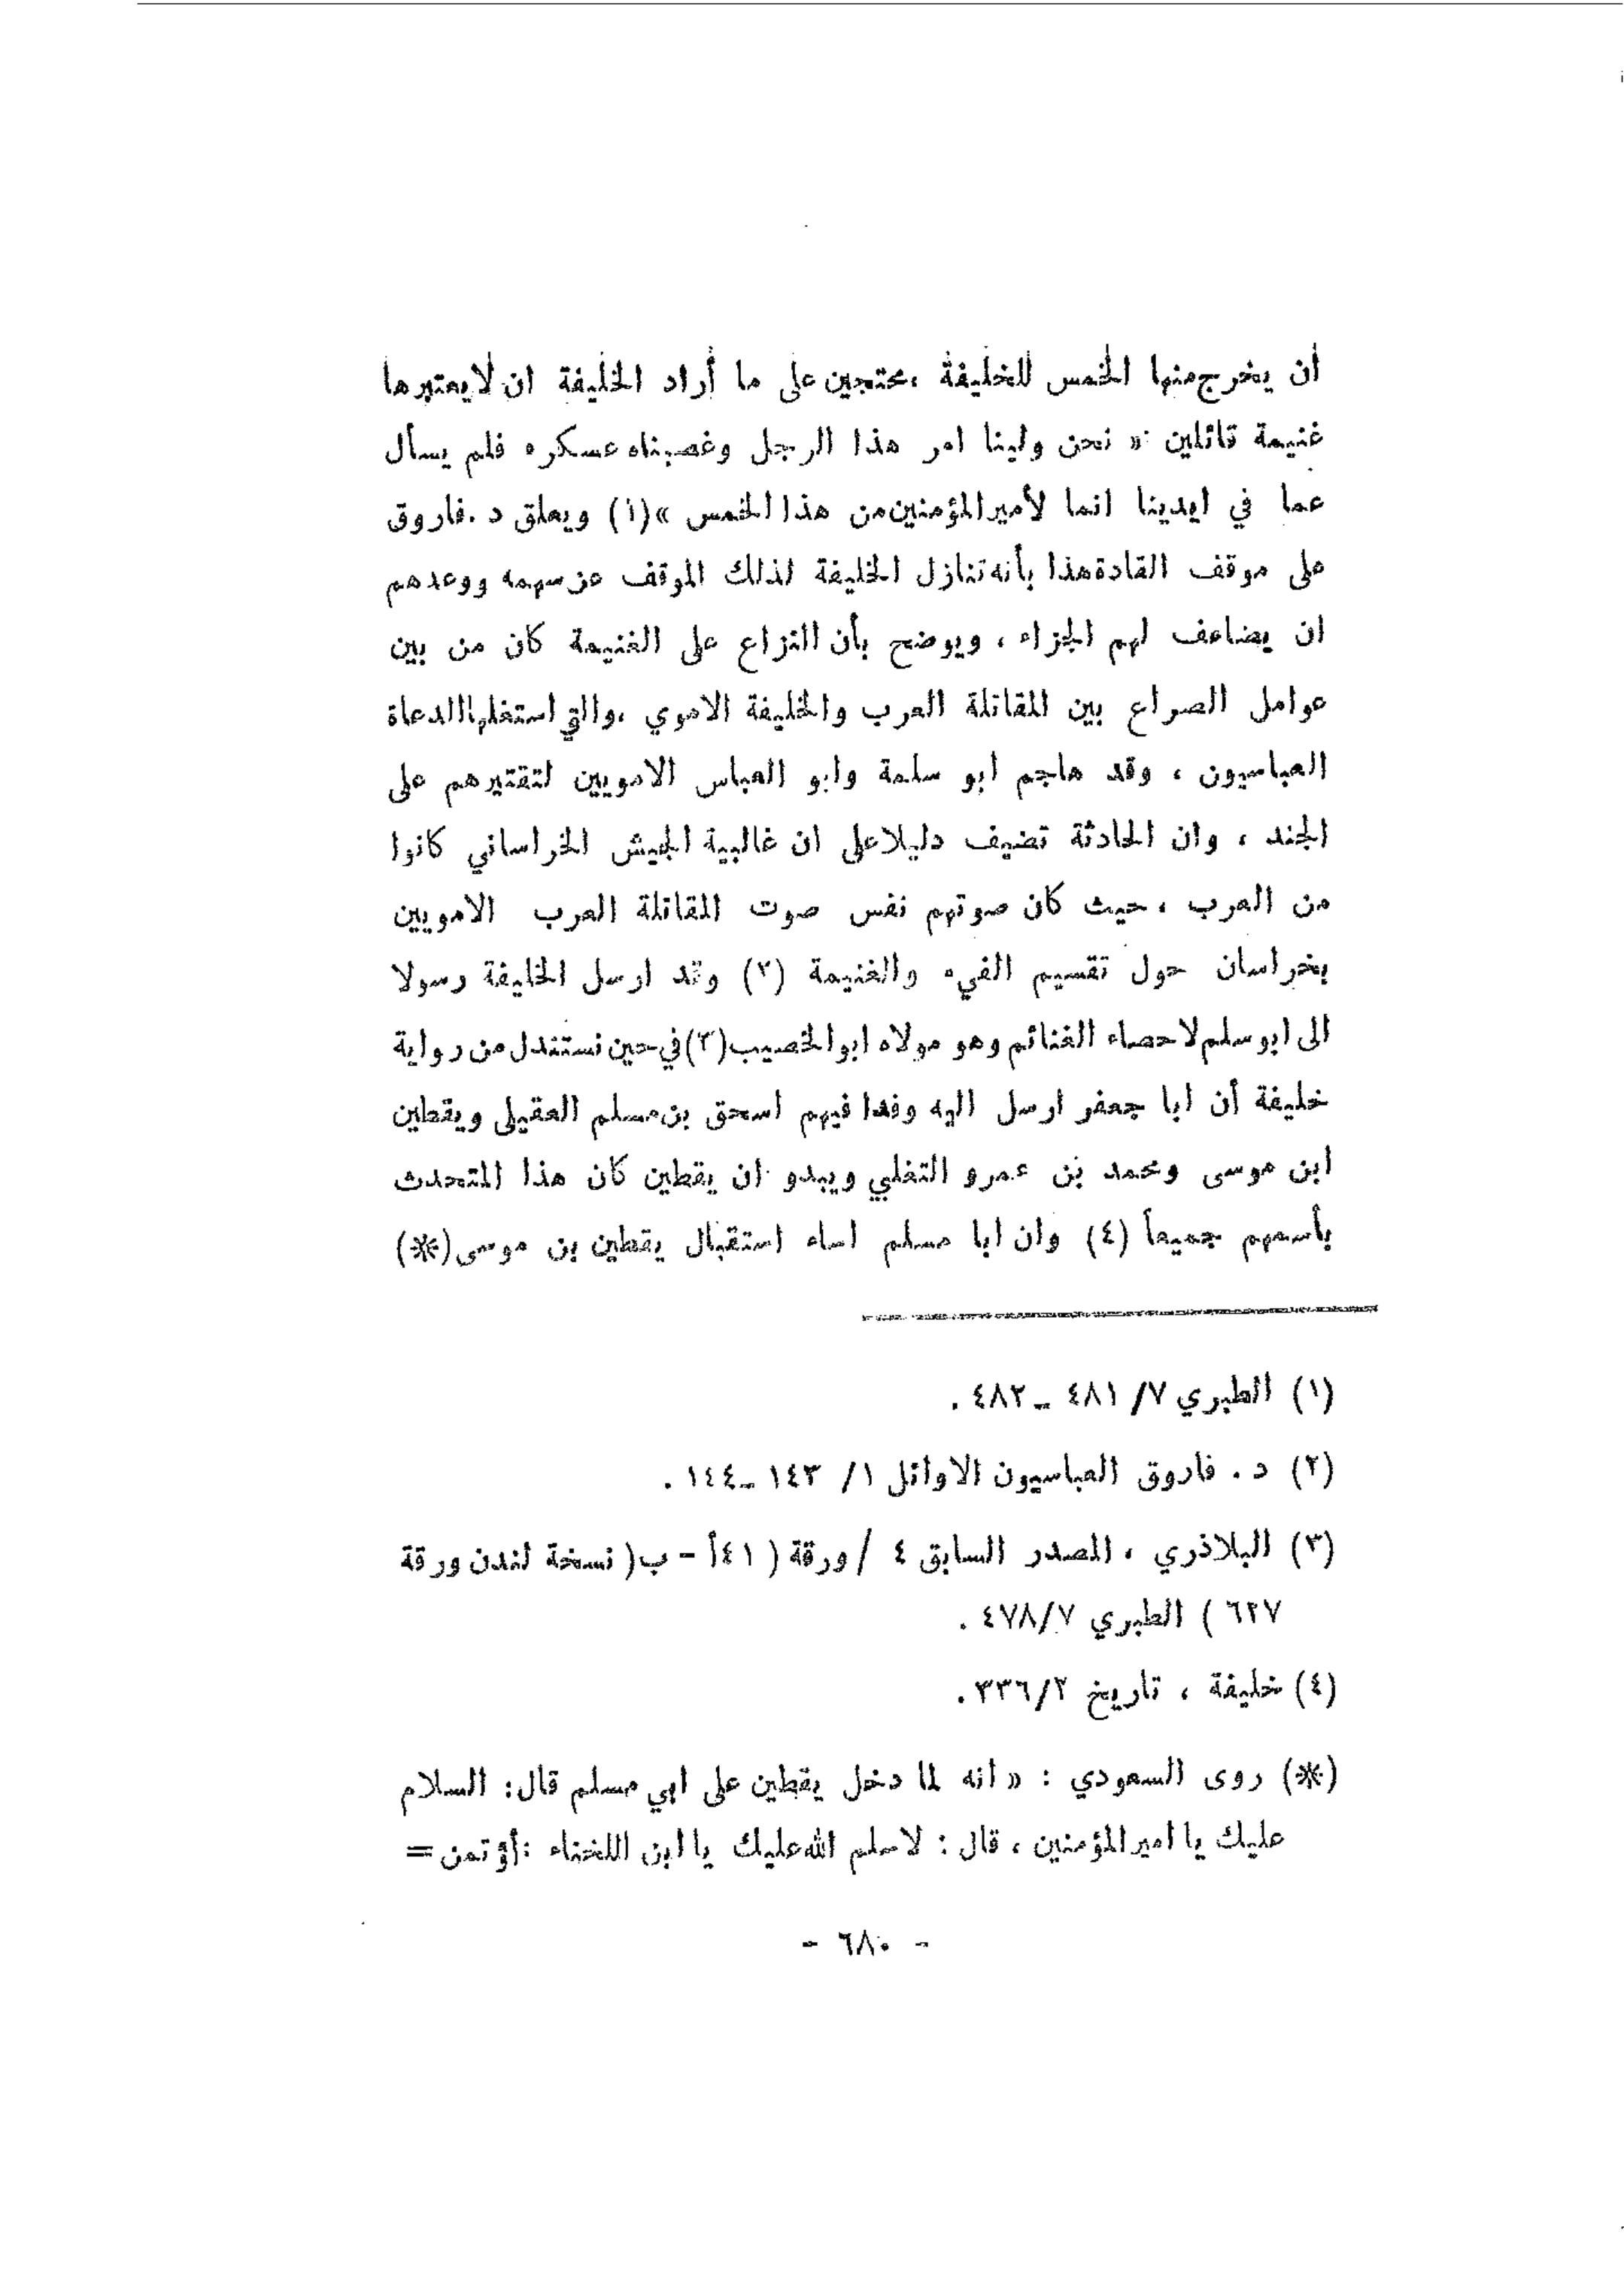 أن يخرج منها الخمس للخليفة ، محتجين على ما أراد الخليفة ان لا يعتبرها
غنيمة قائلين : « نحن ولينا امر هذا الرجل وغصبناه عسكره فلم يسأل
عما في ايدينا انما لأمير المؤمنين من هذا الخمس »(١) ويعلق د . فاروق
على موقف القادة هذا بأنه تنازل الخليفة لذلك الموقف عن سهمه ووعدهم
ان يضاعف لهم الجزاء ، ويوضح بأن النزاع على الغنيمة كان من بين
عوامل الصراع بين المقاتلة العرب والخليفة الاموي ، والتي استغلها الدعاة
العباسيون ، وقد هاجم ابو سلمة وابو العباس الامويين لتقتيرهم على
الجند ، وان الحادثة تضيف دليلا على ان غالبية الجيش الخراساني كانوا
من العرب ، حيث كان صوتهم نفس صوت المقاتلة العرب الامويين
بخراسان حول تقسيم الفيء والغنيمة (٢) وقد ارسل الخليفة رسولا
الى ابو سلم لاحصاء الغنائم وهو مولاه ابو الخصيب(٣) في حين نستندل من رواية
خليفة أن ابا جعفر ارسل اليه وفدا فيهم اسحق بن مسلم العقيلي ويقطين
ابن موسى ومحمد بن عمرو التغلبي ويبدو ان يقطين كان هذا المتحدث
بأسمهم جميعاً (٤) وان ابا مسلم اساء استقبال يقطين بن موسى(*)
(١) الطبري ٧/ ٤٨١ ـ ٤٨٢ .
(٢) د . فاروق العباسيون الاوائل ١/ ١٤٣ ـ ١٤٤ .
(٣) البلاذري ، المصدر السابق ٤ / ورقة ( ٤١أ - ب( نسخة لندن ورقة
٦٢٧ ) الطبري ٤٧٨/٧ .
(٤) خليفة ، تاريخ ٣٣٦/٢ .
(*) روى السعودي : « انه لما دخل يقطين على ابي مسلم قال: السلام
عليك يا امير المؤمنين ، قال : لا سلم الله عليك يا ابن اللخناء : أؤتمن =
- ٦٨٠ -